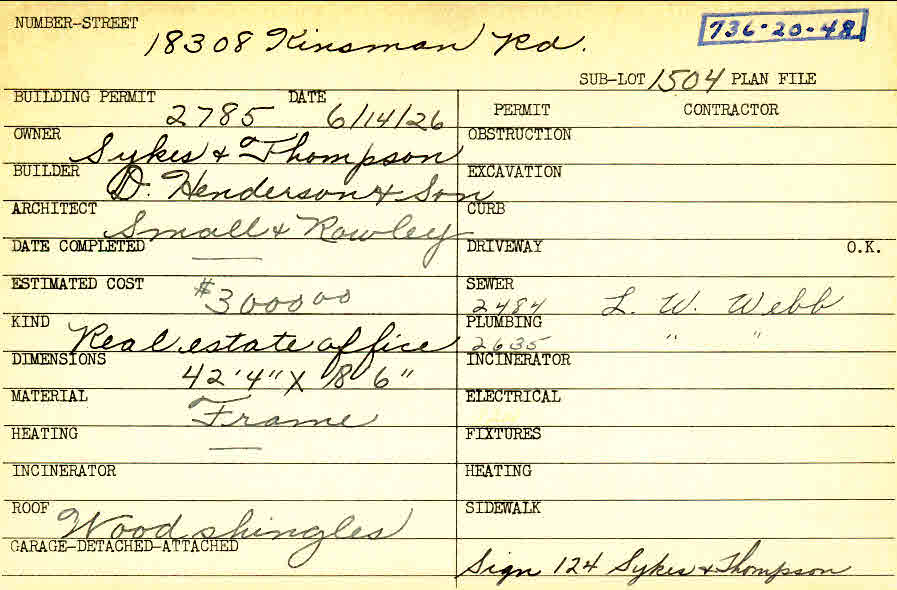 NUMBER-STREET
18308 Kinsman Rd.
736-20-48
SUB-LOT 1504 PLAN FILE
BUILDING PERMIT 2785 DATE 6/14/26
PERMIT CONTRACTOR
OWNER Sykes & Thompson
OBSTRUCTION
BUILDER D. Henderson & Son
EXCAVATION
ARCHITECT Small & Rowley
CURB
DATE COMPLETED —
DRIVEWAY O.K.
ESTIMATED COST #3000 00
SEWER 2484 L. W. Webb
KIND Real estate office
PLUMBING 2635 " "
DIMENSIONS 42'4" X 18 6"
INCINERATOR
MATERIAL Frame
ELECTRICAL
HEATING —
FIXTURES
INCINERATOR
HEATING
ROOF Wood shingles
SIDEWALK
GARAGE-DETACHED-ATTACHED
Sign 124 Sykes & Thompson